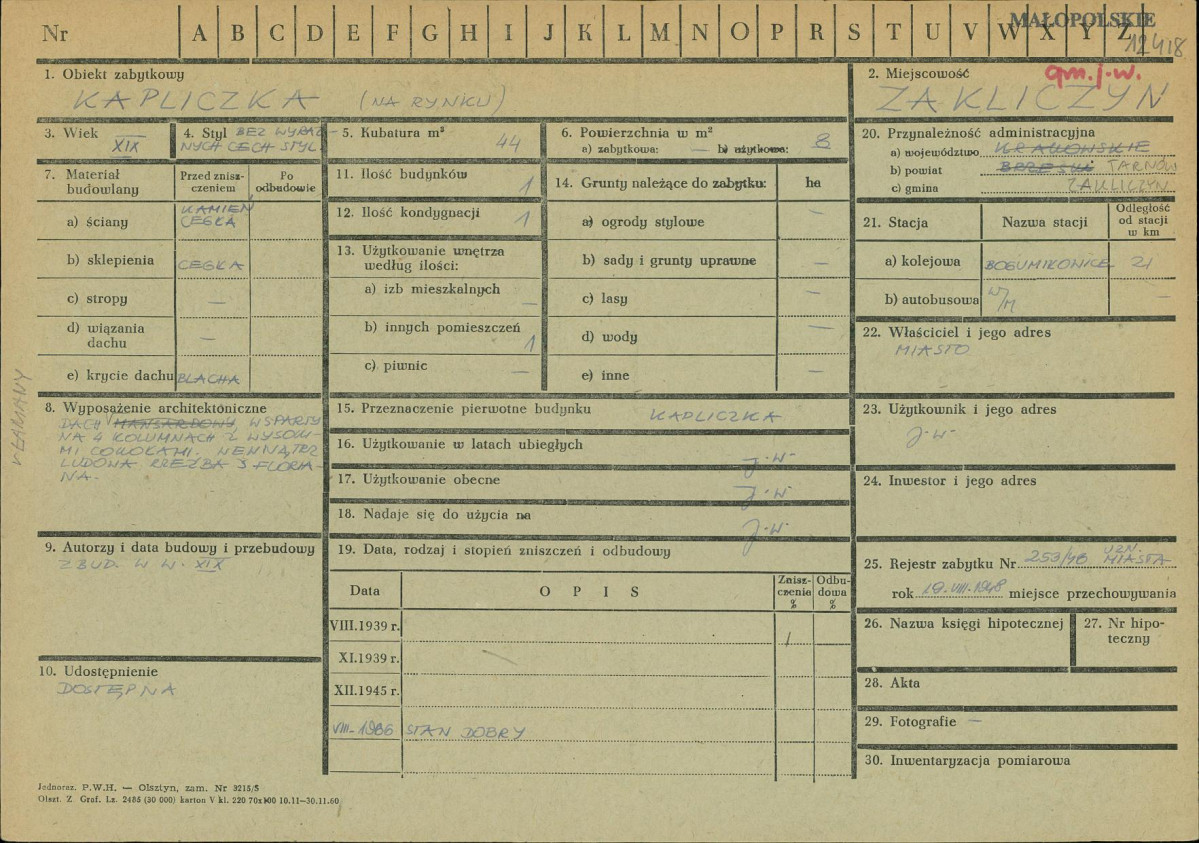 Nr A B C D E F G H I J K L M N O P R S T U V W X Y Z
MAŁOPOLSKIE
12418
1. Obiekt zabytkowy
KAPLICZKA (NA RYNKU)
2. Miejscowość
gm. j.w.
ZAKLICZYN
3. Wiek
XIX
4. Styl BEZ WYRAŹ-
NYCH CECH STYL
5. Kubatura m³
44
6. Powierzchnia w m²
a) zabytkowa: — b) użytkowa: 8
7. Materiał budowlany
Przed znisz-
czeniem
Po
odbudowie
a) ściany
KAMIEŃ
CEGŁA
b) sklepienia CEGŁA
c) stropy —
d) wiązania
dachu —
e) krycie dachu BLACHA
8. Wyposażenie architektoniczne
DACH MANSARDOWY WSPARTY
NA 4 KOLUMNACH Z WYSOKI-
MI COKOŁAMI. WEWNĄTRZ
LUDOWA RZEŹBA Ś FLORIA-
NA.
ŁAMANY
9. Autorzy i data budowy i przebudowy
ZBUD. W W. XIX
10. Udostępnienie
DOSTĘPNA
11. Ilość budynków 1
12. Ilość kondygnacji 1
13. Użytkowanie wnętrza
według ilości:
a) izb mieszkalnych —
b) innych pomieszczeń 1
c) piwnic —
14. Grunty należące do zabytku: ha
a) ogrody stylowe —
b) sady i grunty uprawne —
c) lasy —
d) wody —
e) inne —
15. Przeznaczenie pierwotne budynku KAPLICZKA
16. Użytkowanie w latach ubiegłych J.W.
17. Użytkowanie obecne J.W.
18. Nadaje się do użycia na J.W.
19. Data, rodzaj i stopień zniszczeń i odbudowy
Data
O P I S
Znisz-
czenia
%
Odbu-
dowa
%
VIII.1939 r.
XI.1939 r.
XII.1945 r.
VIII-1966 STAN DOBRY
20. Przynależność administracyjna
a) województwo KRAKOWSKIE
b) powiat BRZESKO TARNÓW
c) gmina ZAKLICZYN
21. Stacja
Nazwa stacji
Odległość
od stacji
w km
a) kolejowa BOGUMIŁOWICE 21
b) autobusowa W/M —
22. Właściciel i jego adres
MIASTO
23. Użytkownik i jego adres
J.W.
24. Inwestor i jego adres
25. Rejestr zabytku Nr 253/48 UZN. MIASTA
rok 19.VIII.1948 miejsce przechowywania
26. Nazwa księgi hipotecznej
27. Nr hipo-
teczny
28. Akta
29. Fotografie —
30. Inwentaryzacja pomiarowa
Jednoraz. P.W.H. — Olsztyn, zam. Nr 3215/5
Olszt. Z Graf. Lz. 2485 (30 000) karton V kl. 220 70x100 10.11—30.11.60